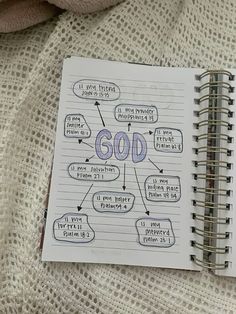 is my friend
John 15:15
is my provider
Philippians 4:19
is my
healer
Psalm
is my
refuge
Psalm 62:8
GOD
is my salvation
Psalm 27:1
is my
hiding place
Psalm
is my helper
Psalm 54:4
is my
fortress
Psalm 18:2
is my
shepherd
Psalm 23:1